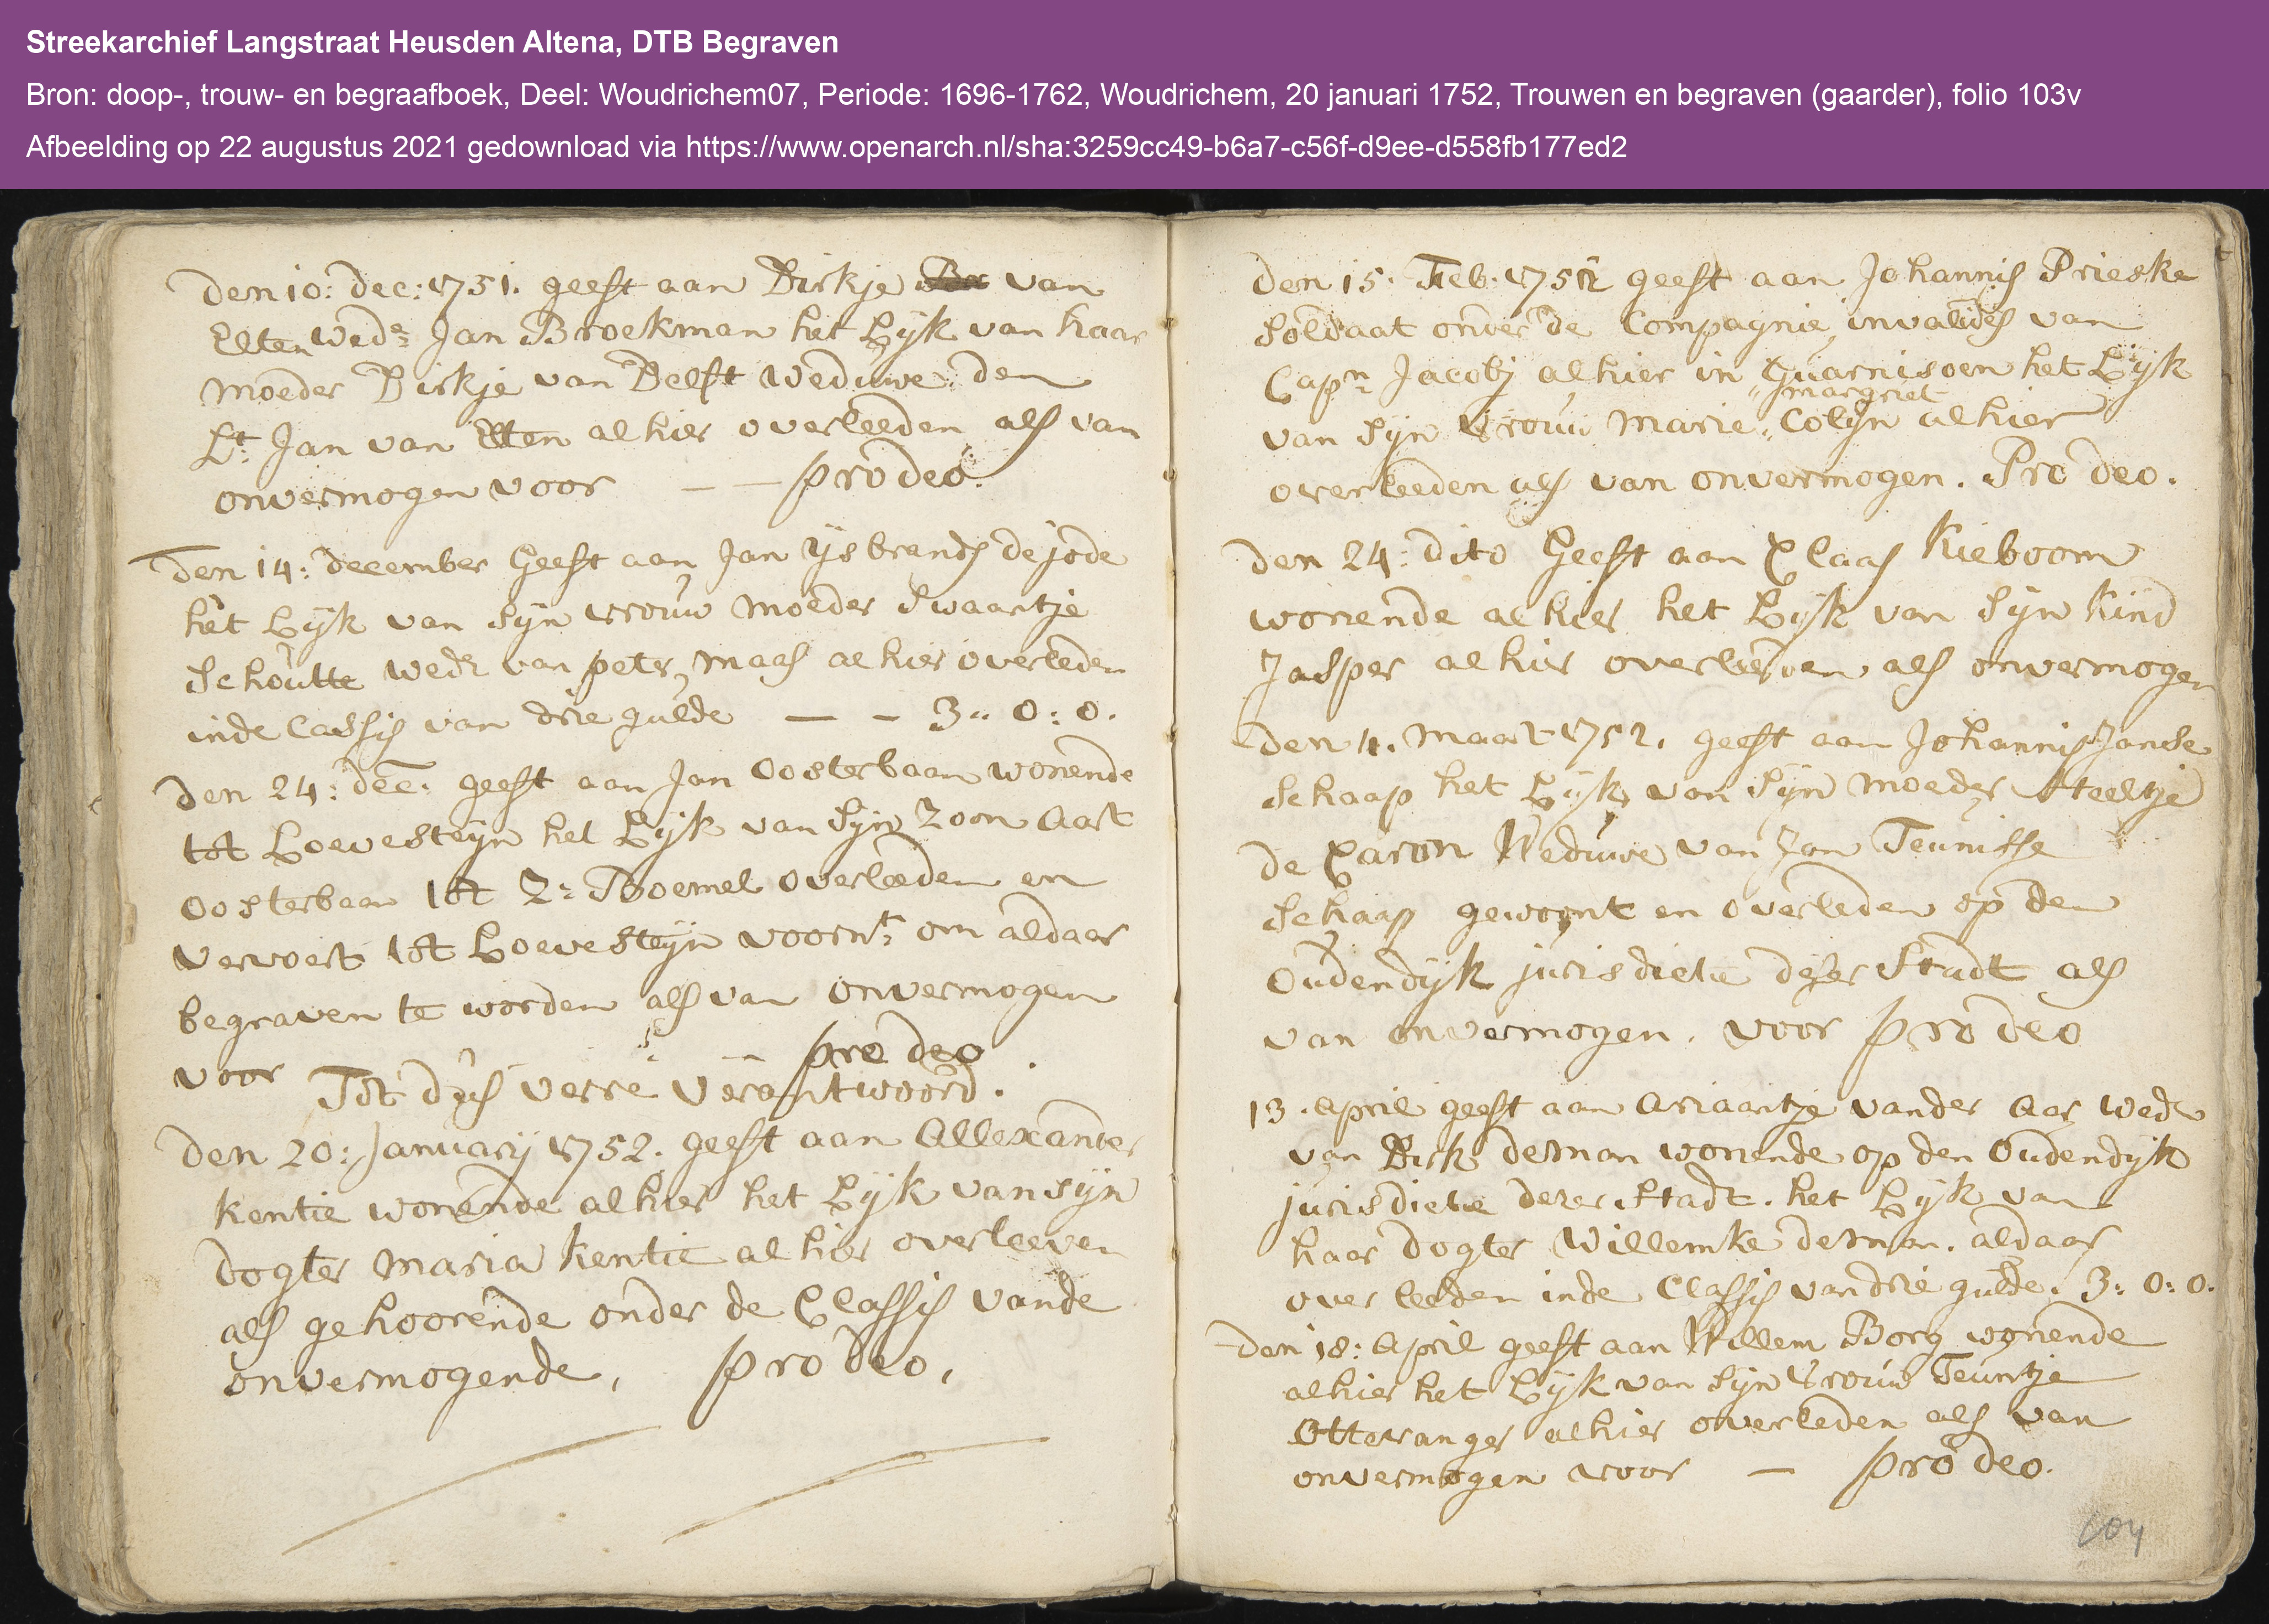 Streekarchief Langstraat Heusden Altena, DTB Begraven
Bron: doop-, trouw- en begraafboek, Deel: Woudrichem07, Periode: 1696-1762, Woudrichem, 20 januari 1752, Trouwen en begraven (gaarder), folio 103v
Afbeelding op 22 augustus 2021 gedownload via https://www.openarch.nl/sha:3259cc49-b6a7-c56f-d9ee-d558fb177ed2
Den 10: Dec: 1751. geeft aan Dirkje van
Elten Wede Jan Broekman het Lijk van haar
moeder Dirkje van Delft Weduwe den
Lt Jan van Elten alhier overleeden als van
onvermogen voor — — pro deo.
Den 14: December Geeft aan Jan ijsbrands de jode
het Lijk van sijn vrouw moeder Swaantje
Schoutte wede van peter maas alhier overleden
inde Cassis van drie gulde — — 3„ 0: 0.
Den 24: dec: geeft aan Jan Oosterbaan wonende
tot Loevesteijn het Lijk van sijn Zoon Aart
Oosterbaan tot Z: Boemel overleeden en
vervoert tot Loevesteijn voornt om aldaar
begraven te worden als van onvermogen
voor — pro deo.
Tot dus verre verantwoord.
Den 20: Januarij 1752. geeft aan Allexander
kentie wonende alhier het Lijk van sijn
dogter maria kentie alhier overleeden
als gehoorende onder de Classis vande
onvermogende, pro deo,
Den 15. Feb. 1752 geeft aan Johannis Prieske
soldaat onder de Compagnie invalides van
Capn Jacobj alhier in Guarnisoen het Lijk
margriet
van sijn vrouw marie „ Colijn alhier
overleeden als van onvermogen. Pro deo.
Den 24: dito Geeft aan Claas Kieboom
wonende alhier het Lijk van sijn kind
Jasper alhier overleeden als onvermogen
Den 4. maart 1752. geeft aan Johannis Janse
Schaap het Lijk van sijn moeder Neeltje
de Caron Weduwe van Jan Teunisse
Schaap gewoont en overleden op den
Oudendijk jurisdictie deser Stadt als
van onvermogen. voor pro deo
13. April geeft aan Ariaantje vander Aas wede
van Dirk deman wonende op den Oudendijk
jurisdictie deser Stadt. het Lijk van
haar dogter Willemke deman. aldaar
over leeden inde Classis van drie gulde. 3: 0: 0.
Den 18: April geeft aan Willem Borg wonende
alhier het Lijk van sijn vrouw Teuntje
Otteranger alhier overleden als van
onvermogen voor — pro deo.
104